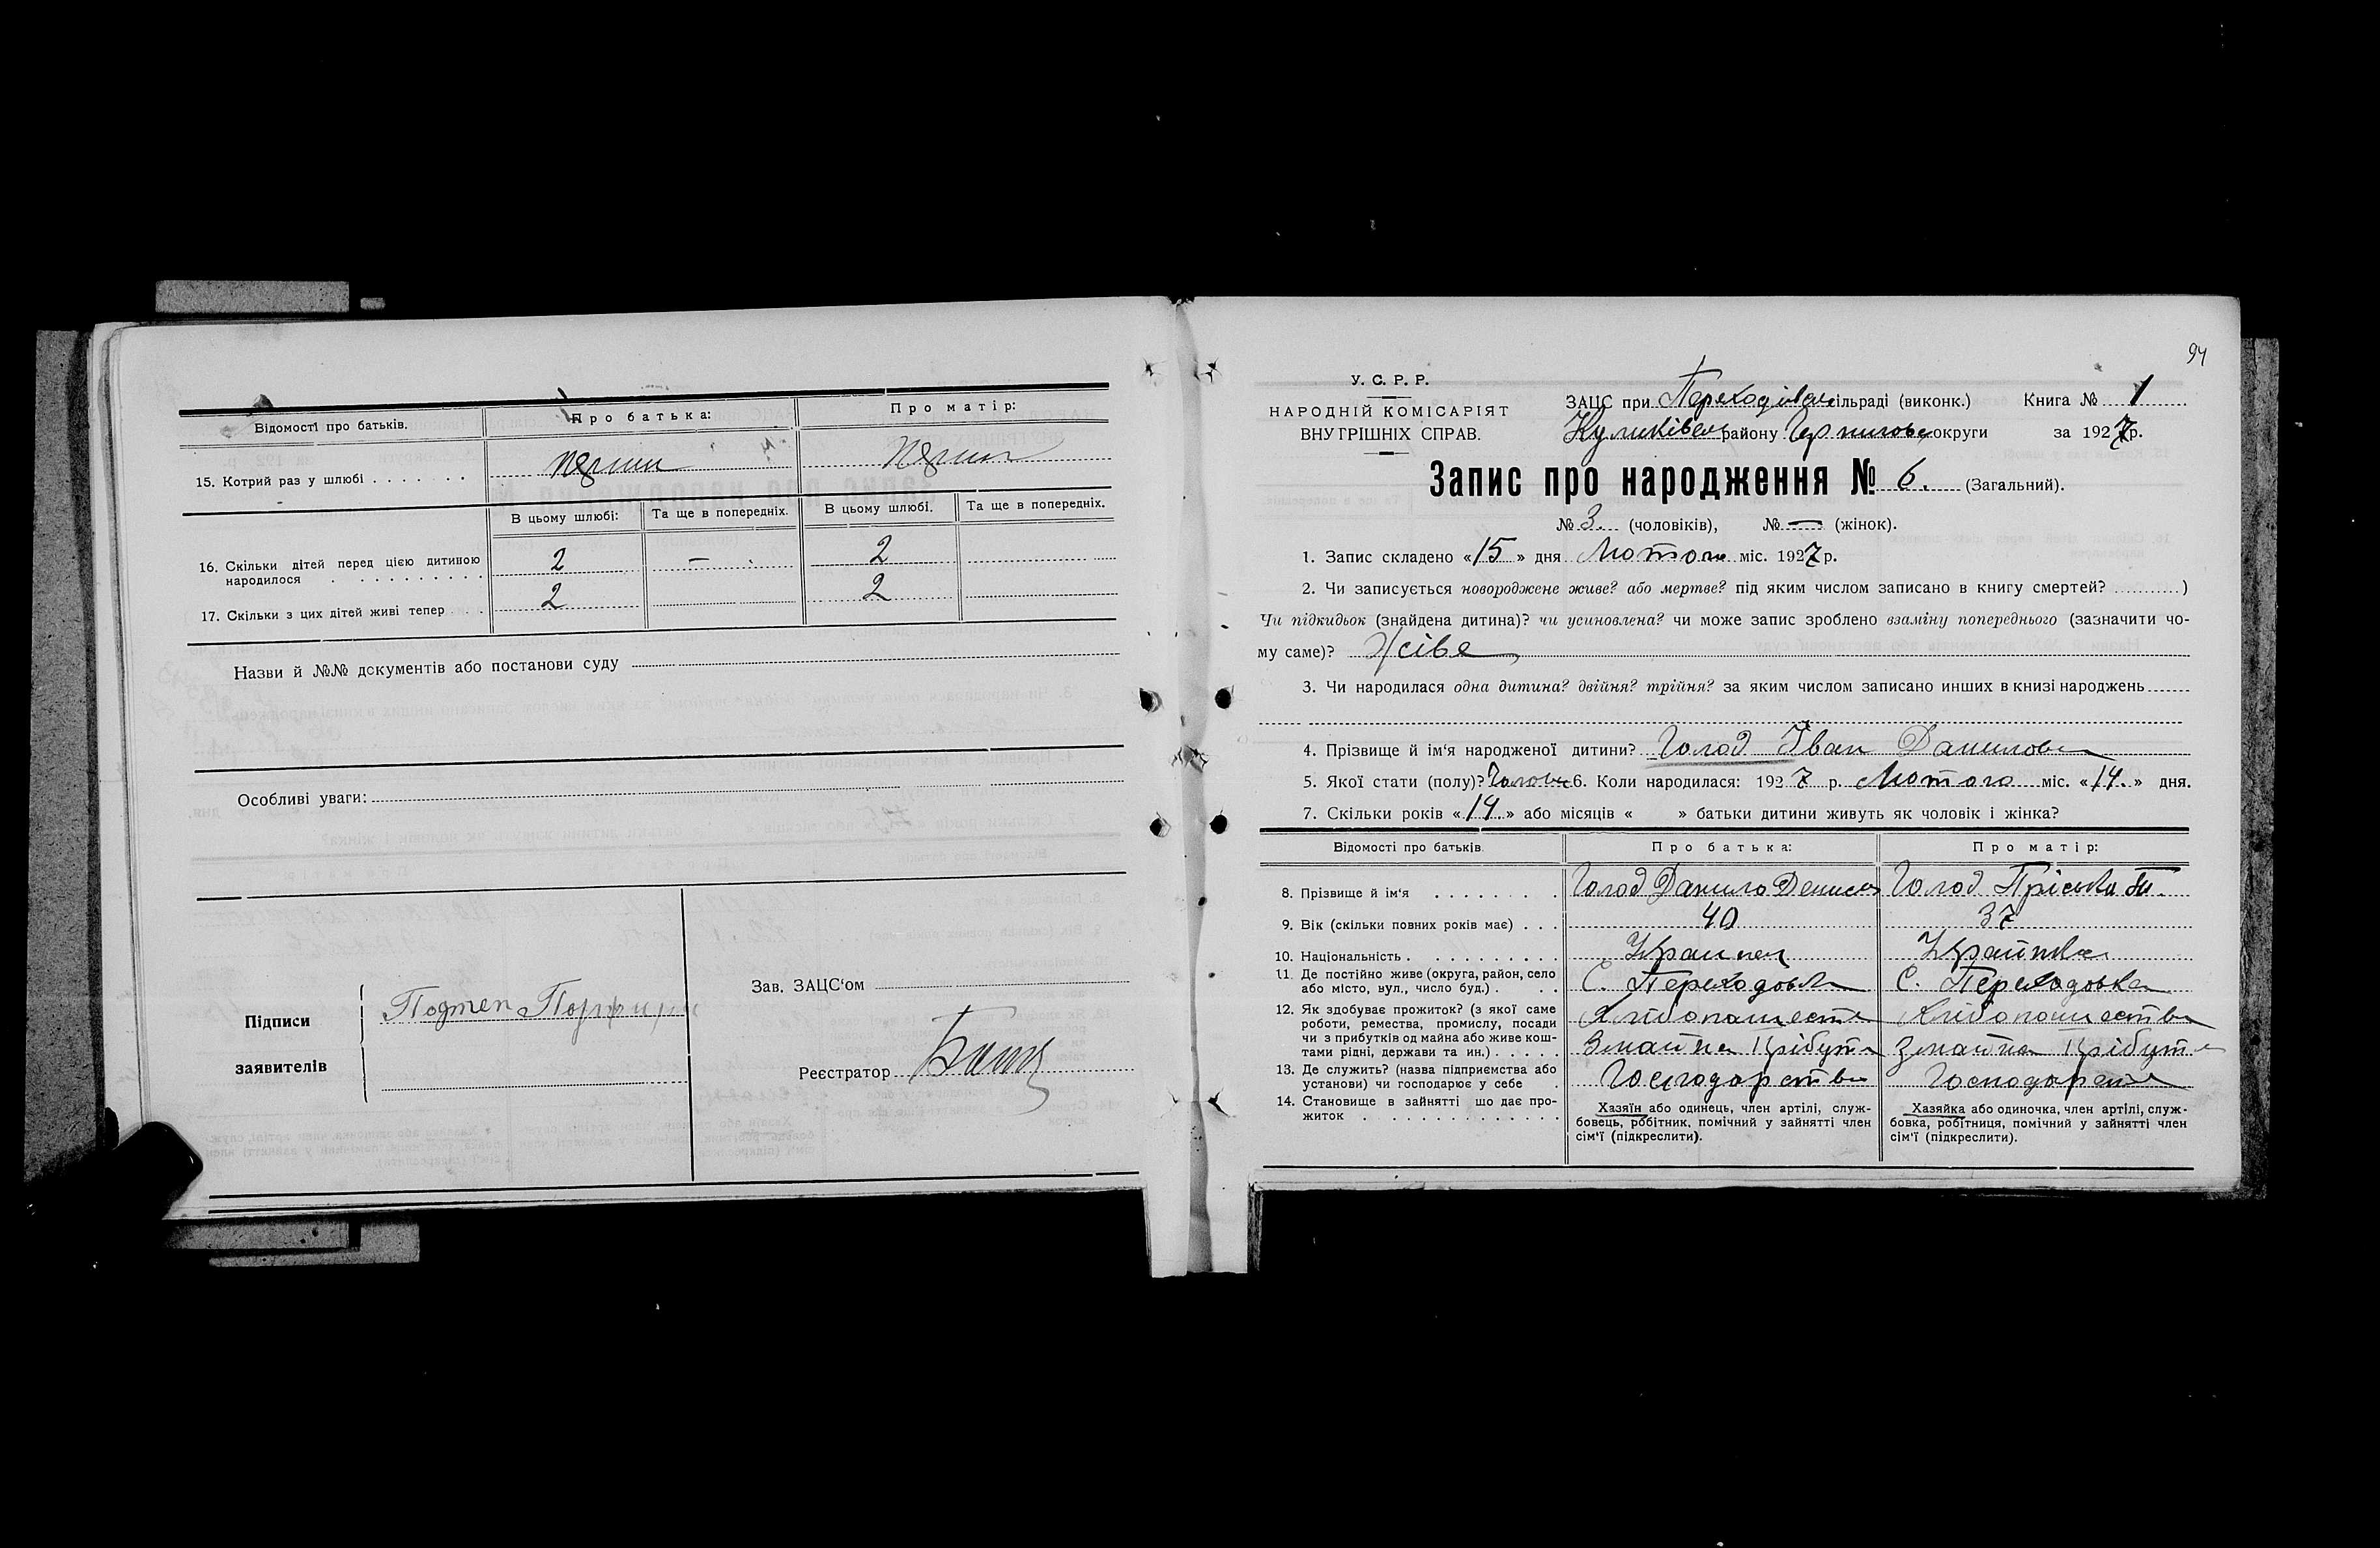 Відомості про батьків.
Про батька:
Про матір:
15. Котрий раз у шлюбі
В цьому шлюбі:
Та ще в попередніх.
В цьому шлюбі.
Та ще в попередніх.
16. Скільки дітей перед цією дитиною народилося
2
—
2
17. Скільки з цих дітей живі тепер
2
2
Назви й №№ документів або постанови суду
Особливі уваги:
Підписи
заявителів
Зав. ЗАЦС'ом
Реєстратор
94
У. С. Р. Р.
НАРОДНІЙ КОМІСАРІЯТ
ВНУТРІШНІХ СПРАВ.
ЗАЦС при Переходівськ сільраді (виконк.) Книга № 1
Куликівськ району Чернигівськ округи за 1927 р.
Запис про народження № 6. (Загальний).
№ 3. (чоловіків), № — (жінок).
1. Запис складено «15» дня Лютого міс. 1927 р.
2. Чи записується новороджене живе? або мертве? під яким числом записано в книгу смертей? )
Чи підкидьок (знайдена дитина)? чи усиновлена? чи може запис зроблено взаміну попереднього (зазначити чо-
му саме)? Живе
3. Чи народилася одна дитина? двійня? трійня? за яким числом записано инших в книзі народжень
4. Прізвище й ім'я народженої дитини? Голод Іван Данилов
5. Якої стати (полу)? Чолов 6. Коли народилася: 1927 р. Лютого міс. «14.» дня.
7. Скільки років «14.» або місяців « » батьки дитини живуть як чоловік і жінка?
Відомості про батьків
Про батька:
Про матір:
8. Прізвище й ім'я
Голод Данило Денисов
Голод Пріська
9. Вік (скільки повних років має)
40
37
10. Національність
Українец
Українка
11. Де постійно живе (округа, район, село
або місто, вул., число буд.)
С. Переходовка
С. Переходовка
12. Як здобуває прожиток? (з якої саме
роботи, ремества, промислу, посади
чи з прибутків од майна або живе кош-
тами рідні, держави та ин.)
Хлібопашество
Хлібопашество
13. Де служить? (назва підприємства або
установи) чи господарює у себе
Господарство
Господарство
14. Становище в зайнятті що дає про-
житок
Хазяїн або одинець, член артілі, служ-
бовець, робітник, помічний у зайнятті член
сім'ї (підкреслити).
Хазяйка або одиночка, член артілі, служ-
бовка, робітниця, помічний у зайнятті член
сім'ї (підкреслити).